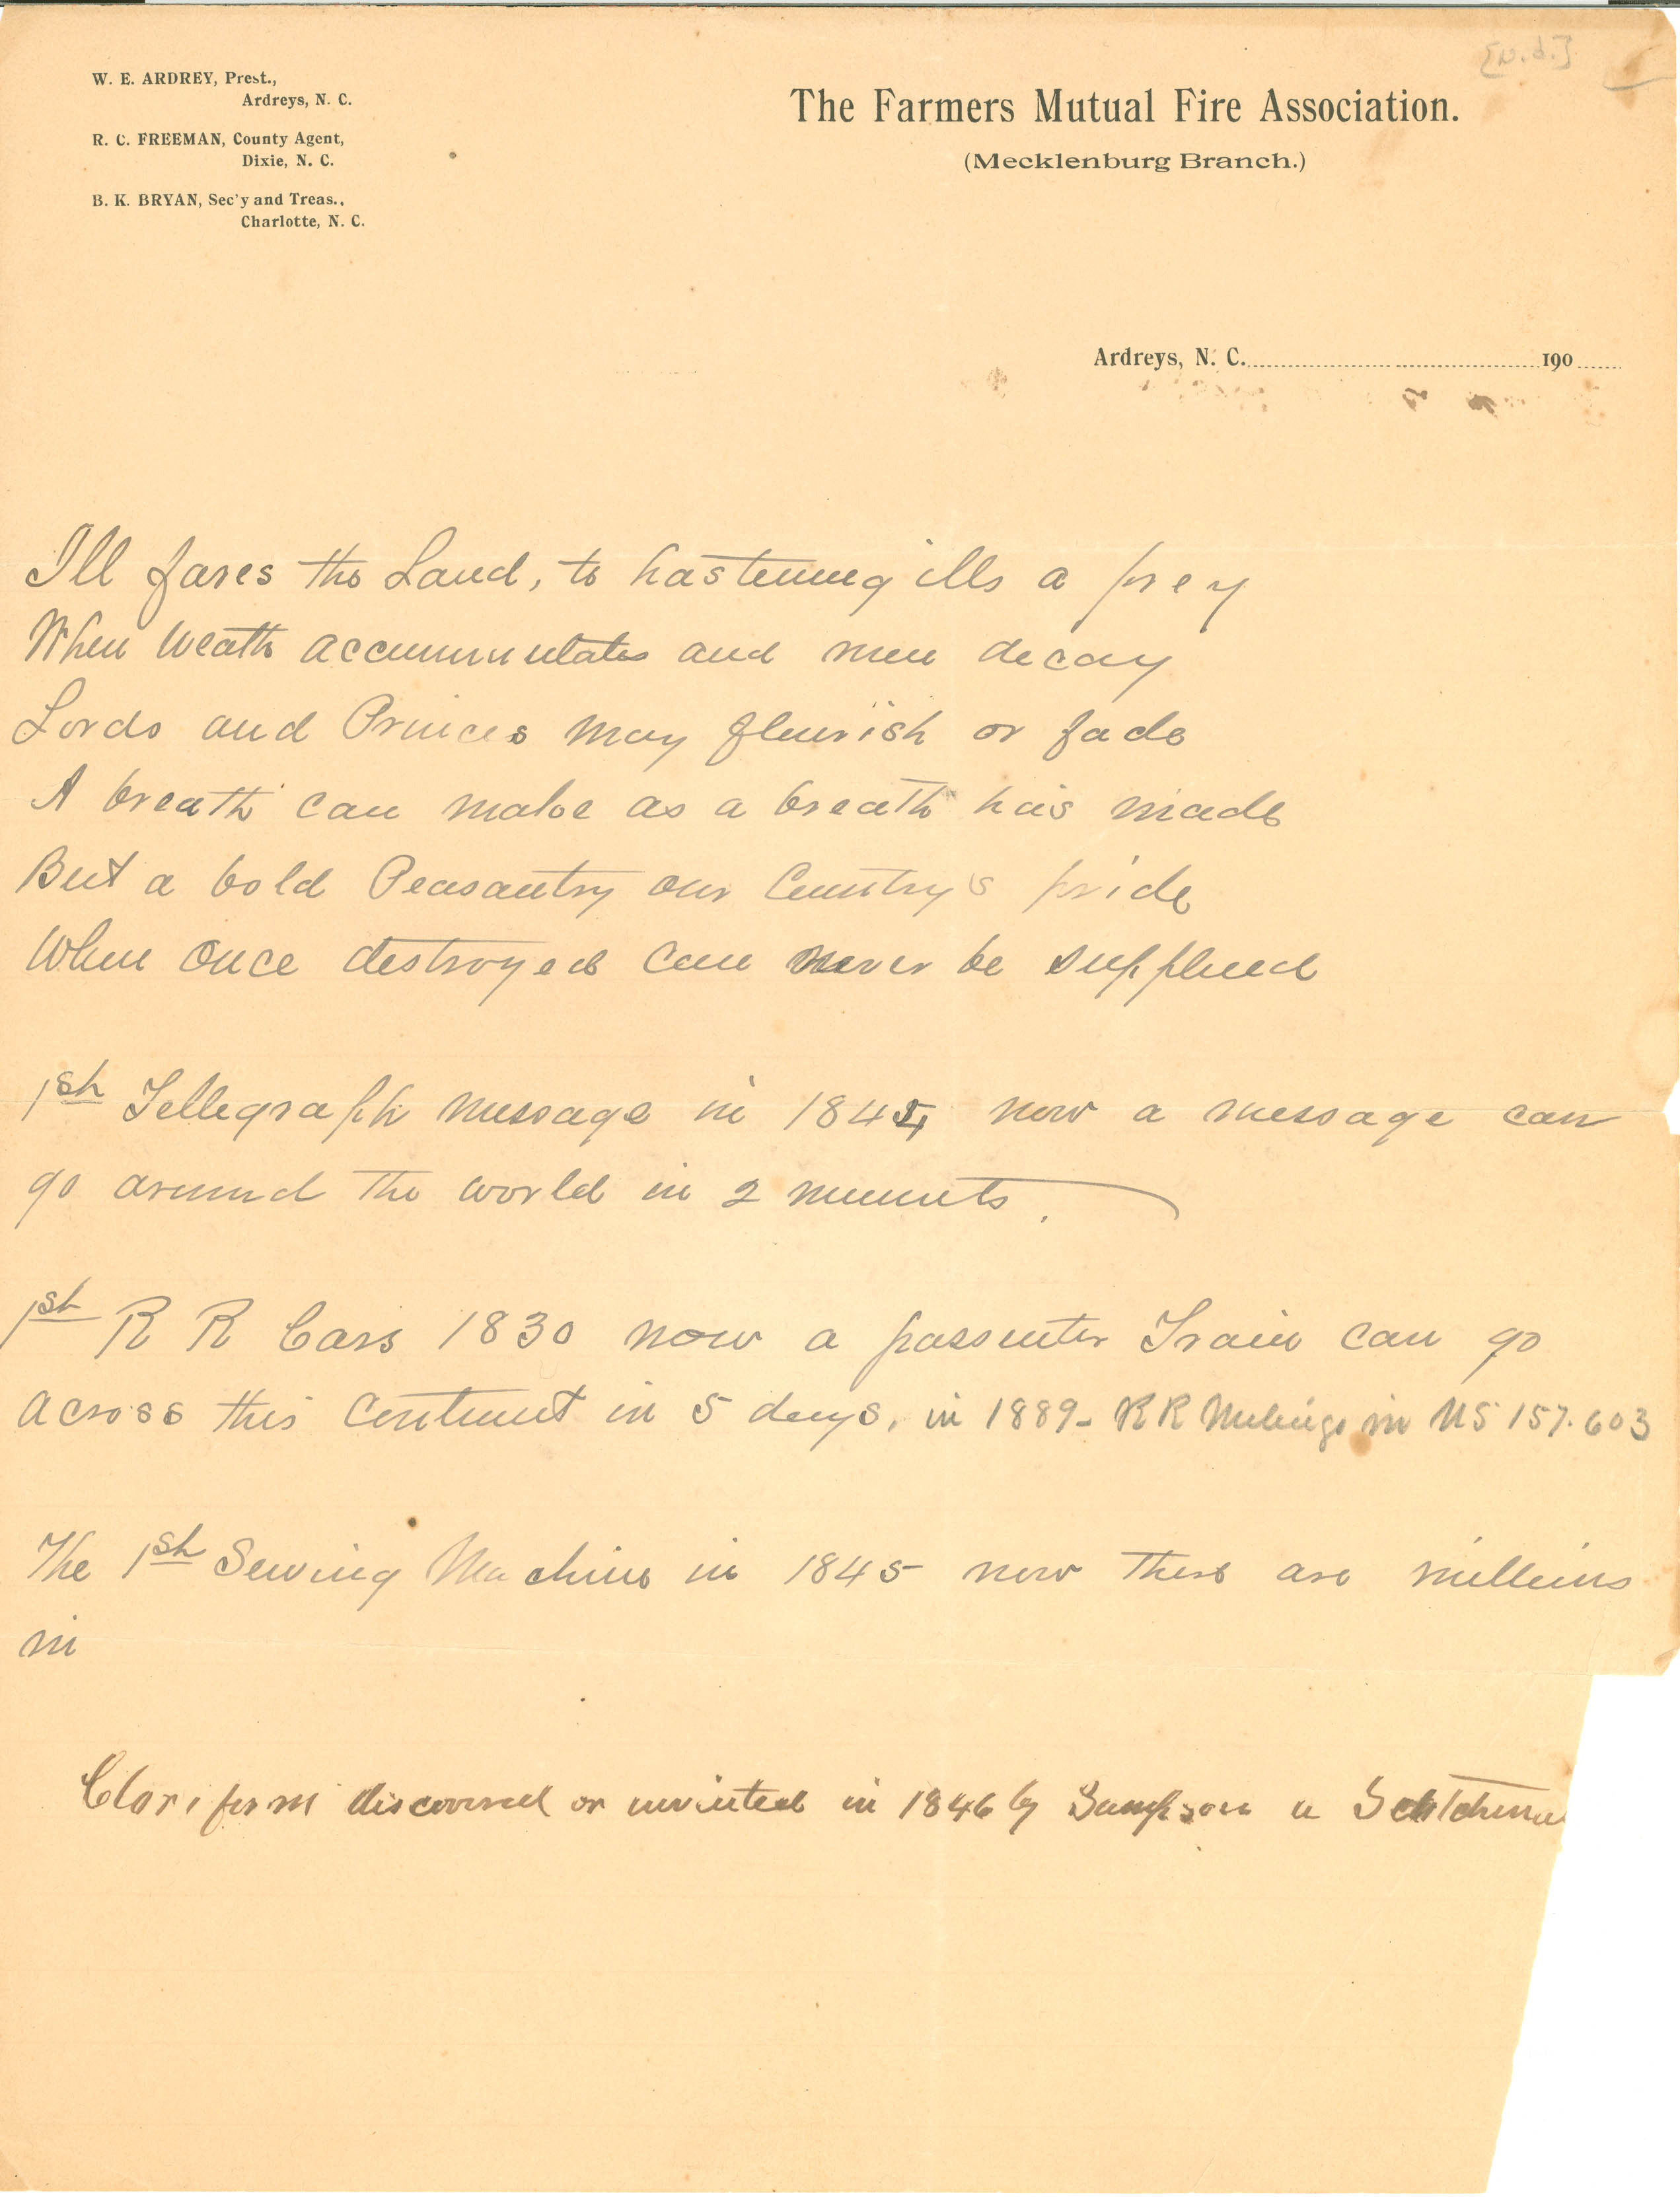 [N.d.]
W. E. ARDREY, Prest.,
Ardreys, N. C.
R. C. FREEMAN, County Agent,
Dixie, N. C.
B. K. BRYAN, Sec'y and Treas.,
Charlotte, N. C.
The Farmers Mutual Fire Association.
(Mecklenburg Branch.)
Ardreys, N. C. 190
Ill fares the Land, to hastening ills a prey
When Weath accummulates and men decay
Lords and Princes may flourish or fade
A breath can make as a breath has made
But a bold Peasantry our Countrys pride
When once destroyed can never be supplied
1st Tellegraph message in 1844 now a message can
go around the world in 2 minuets.
1st R R Cars 1830 now a passenter Train can go
across this continent in 5 days, in 1889- RR in US 157.603
The 1st Sewing Machine in 1845 now there are millions
in
Cloriform discovered or invented in 1846 by Sampson a Scotchma